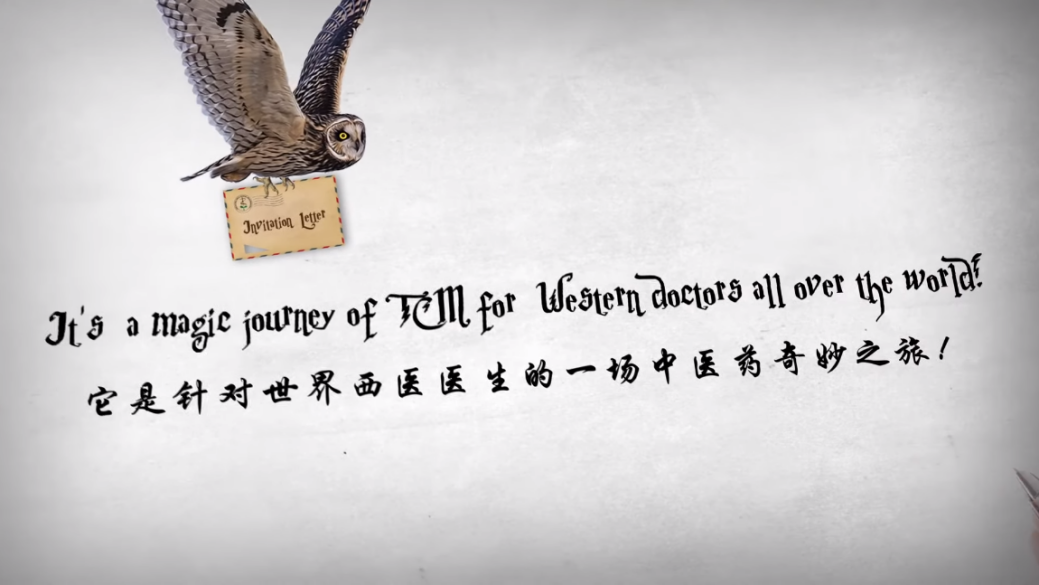 Invitation Letter
It's a magic journey of TCM for Western doctors all over the world!
它是针对世界西医医生的一场中医药奇妙之旅！